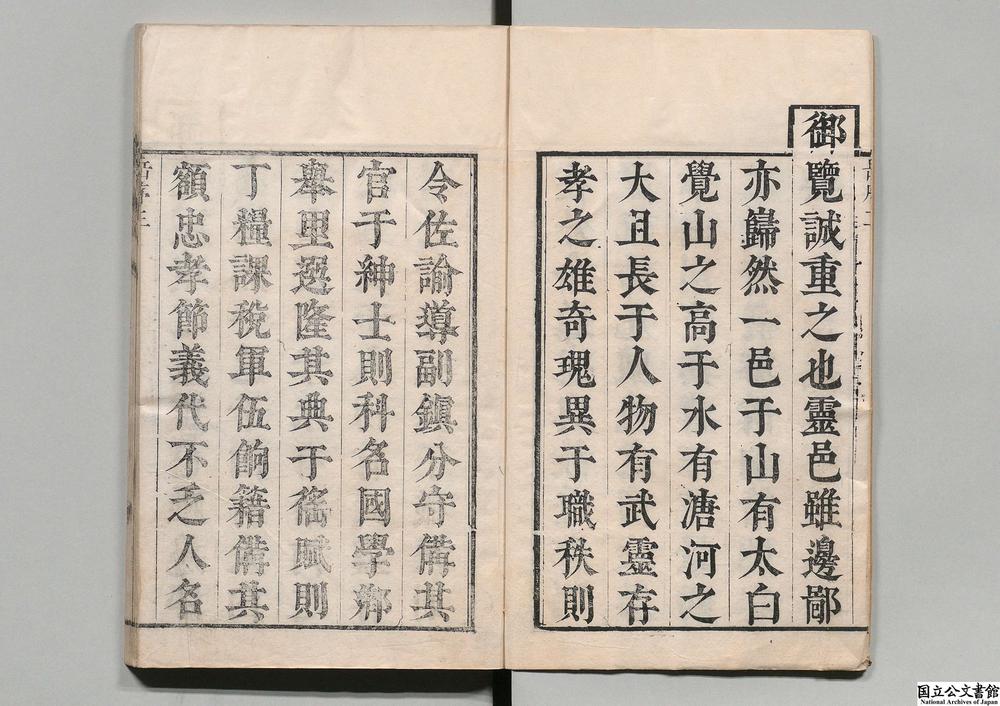 御覽誠重之也靈邑雖邊鄙
亦巋然一邑于山有太白
覺山之高于水有溏河之
大且長于人物有武靈存
孝之雄奇瑰異于職秩則
令佐諭導副鎭分守備其
官于紳士則科名國學鄉
舉里選隆其典于徭賦則
丁糧課稅軍伍餉籍備其
額忠孝節義代不乏人名
国立公文書館
National Archives of Japan